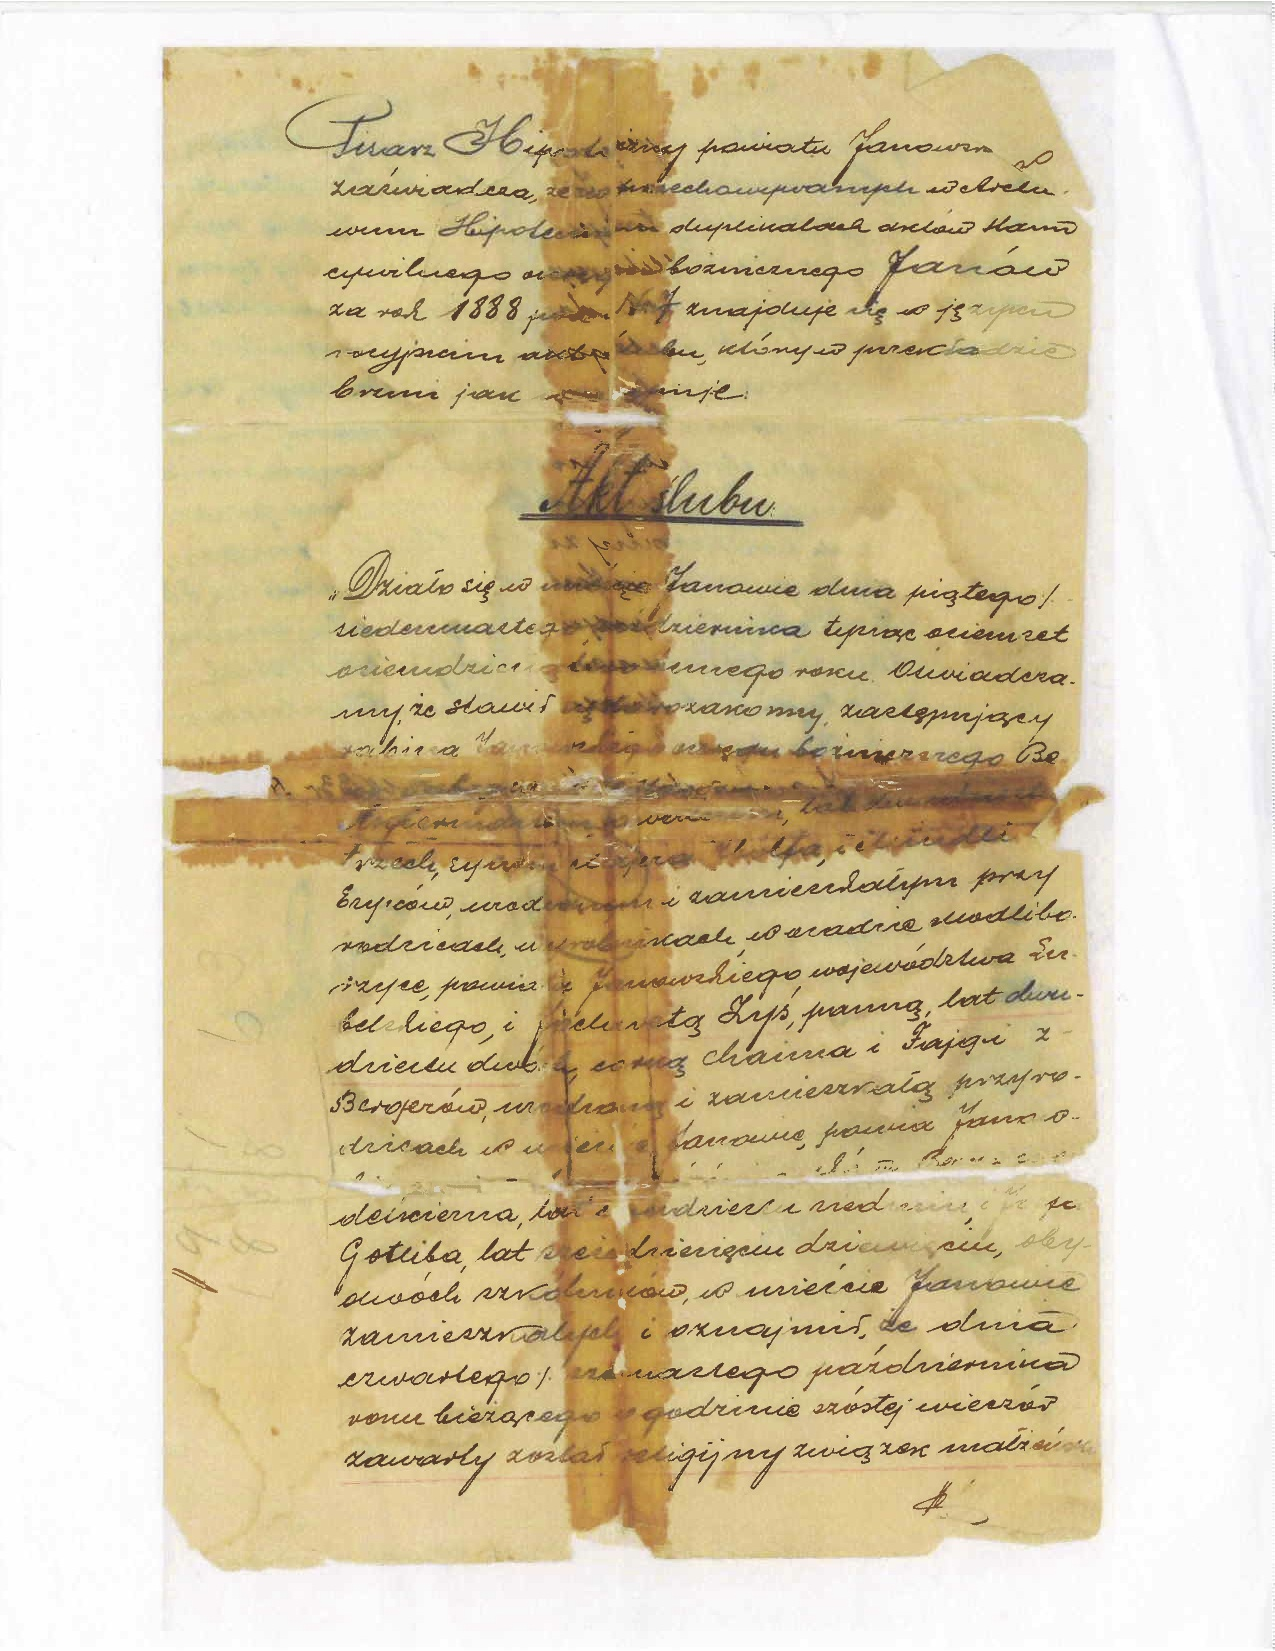 Pisarz Hipoteczny powiatu Janowsk
zaświadcza, że w przechowywanych w Archi-
wum Hipotecznem duplikatach aktów stanu
cywilnego okręgu bóżniczego Janów
za rok 1888 pod Nr 7 znajduje się w języku
rosyjskim akt ślubu, który w przekładzie
brzmi jak następuje:
Akt ślubu.
„Działo się w mieście Janowie dnia piątego/
siedemnastego października tysiąc osiemset
osiemdziesiątego ósmego roku. Oświadcza-
my, że stawił się starozakonny, zastępujący
rabina Janowskiego okręgu bóżniczego Be
lat dwudziestu
trzech, synem Wolfa, i
Eryców, urodzonym i zamieszkałym przy
rodzicach, w osadzie Modlibo-
rzyce, powiatu Janowskiego, województwa Lu-
belskiego, i Zyś, panną, lat dwu-
dziestu dwóch, córką Chaima i Fajgi z
Bergerów, urodzoną i zamieszkałą przy ro-
dzicach w mieście Janowie, powia Janow-
lat
Gotliba, lat sześćdziesięciu dziewięciu, oby-
dwóch szkolników, w mieście Janowie
zamieszkałych i oznajmił, że dnia
czwartego/ szesnastego października
roku bieżącego o godzinie szóstej wieczór
zawarty został religijny związek małżeński